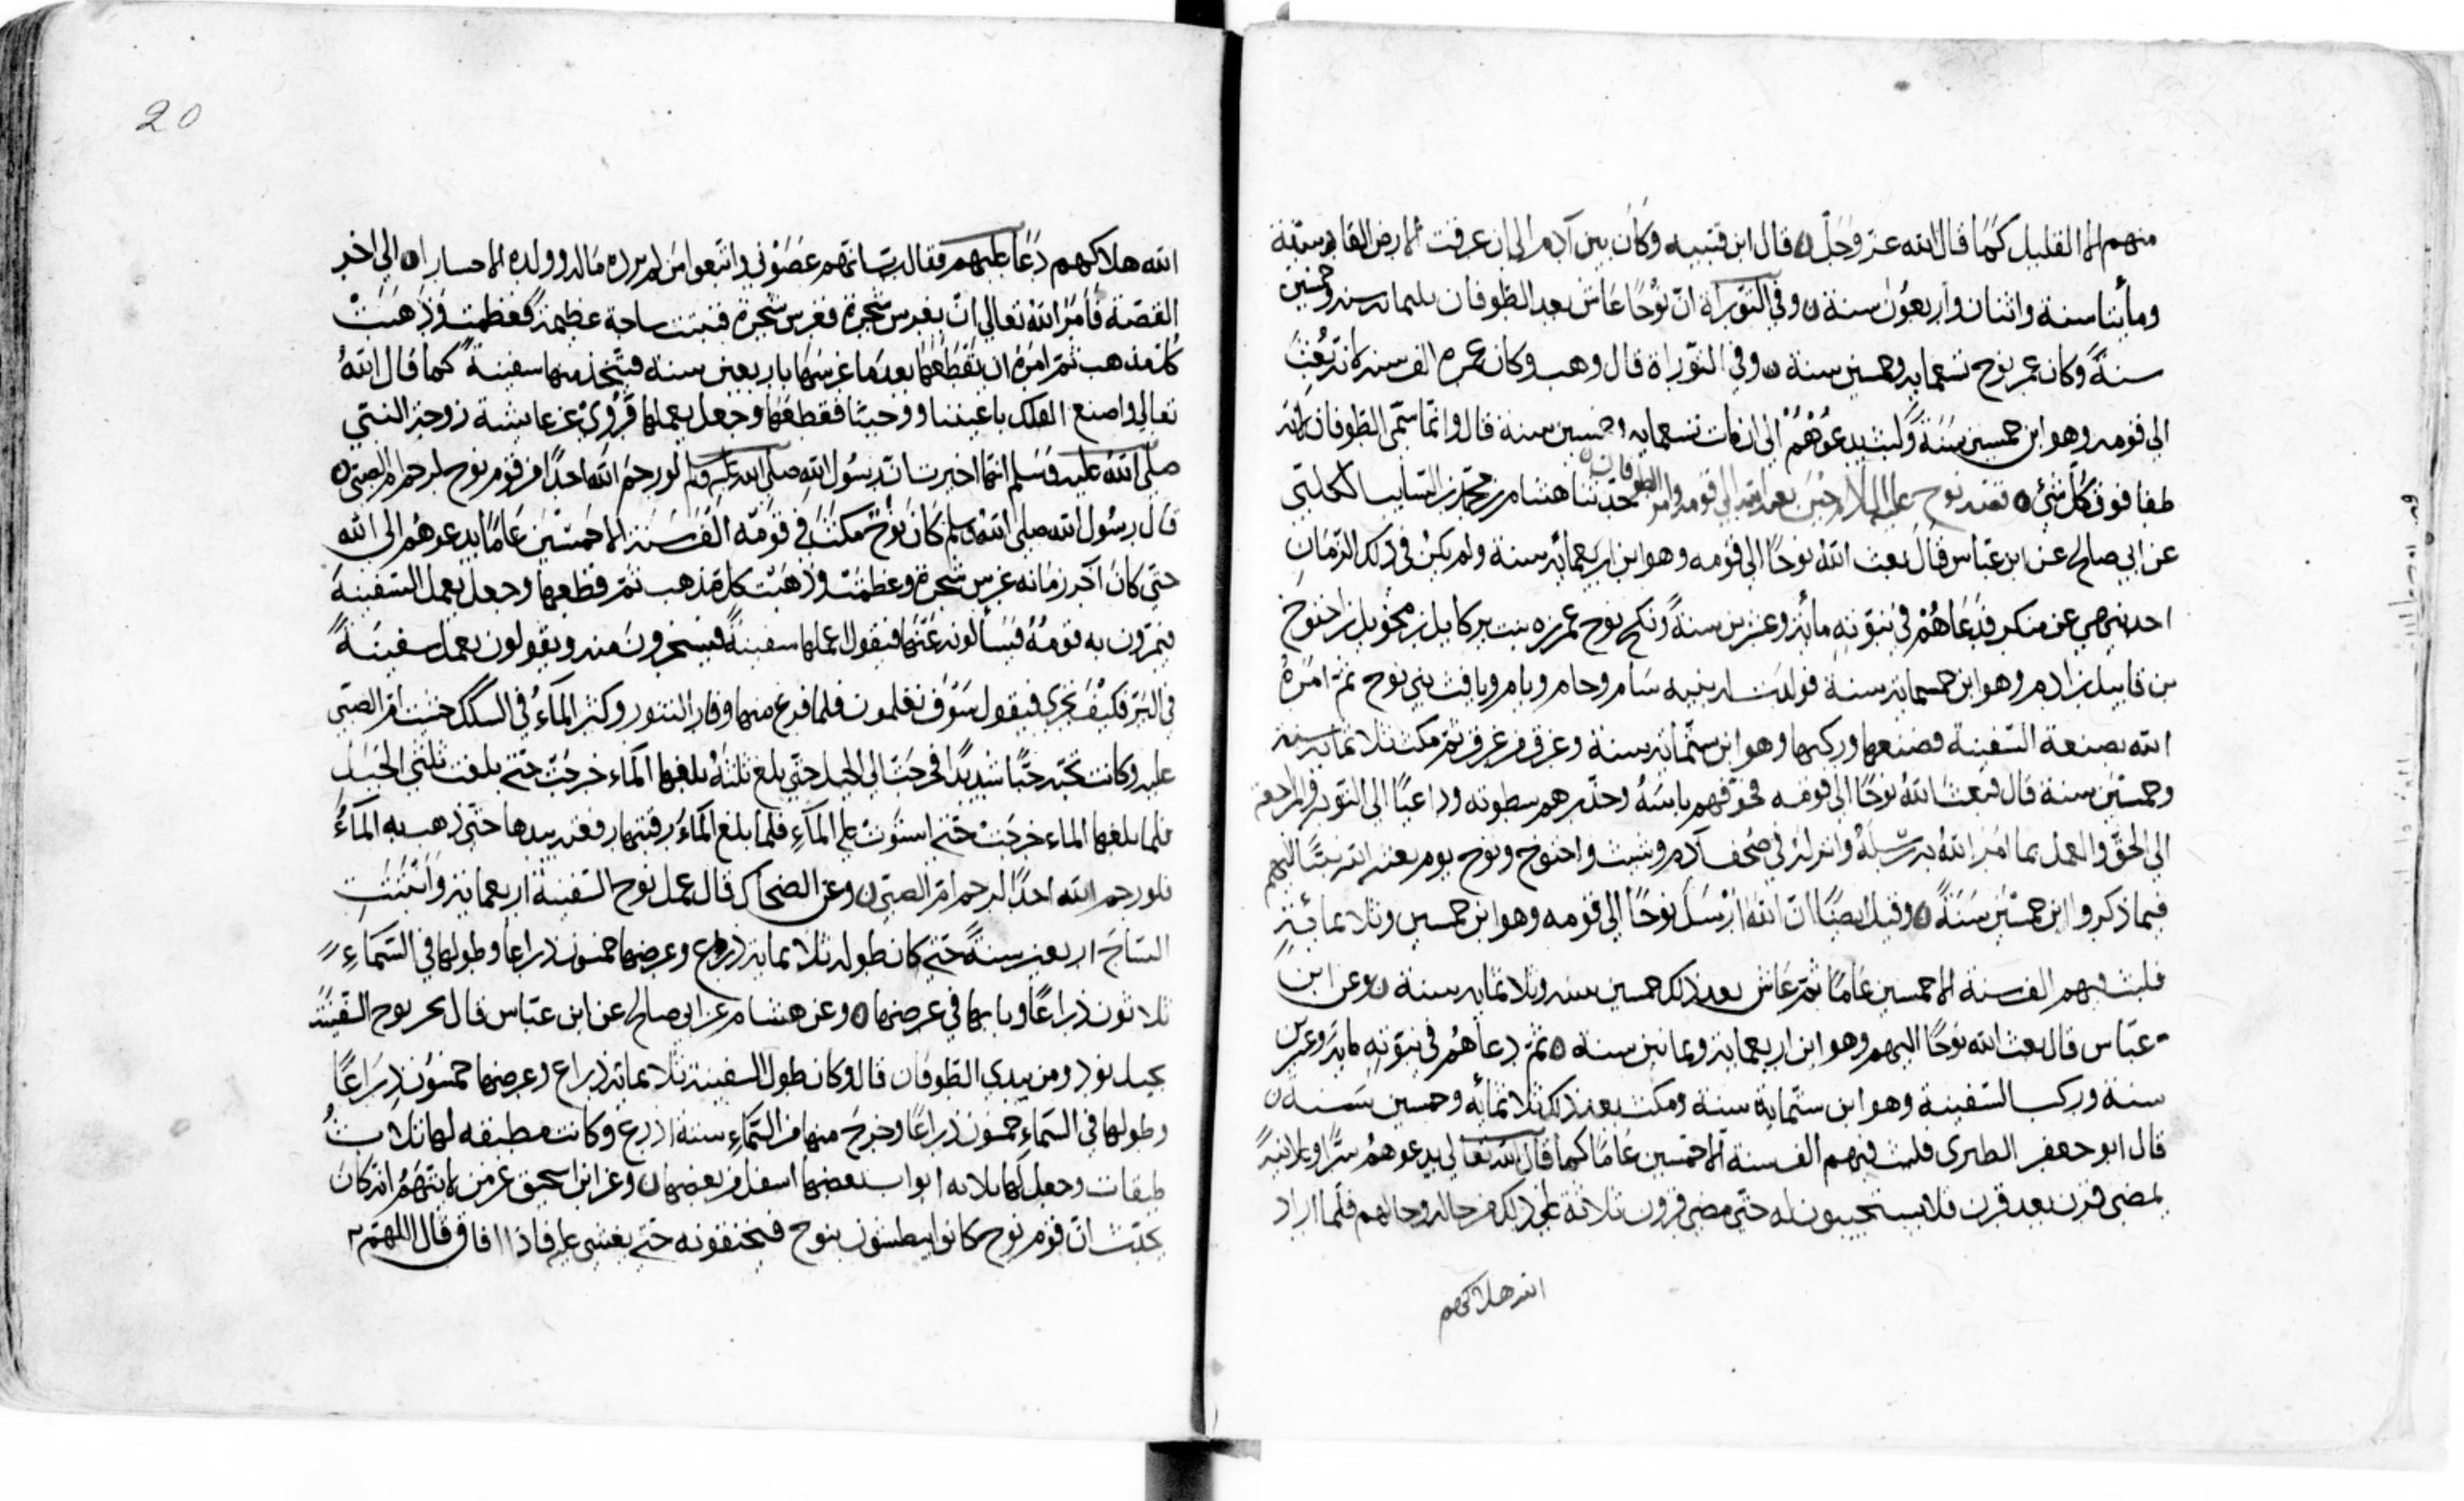 منهم الا القليل كما قال الله عز وجل قال ابن قتيبه وكان بين آدم الى ان غرقت الارض الفا سنة
ومأيتا سنة واثنان واربعون سنة وفي التوراة ان نوحا عاش بعد الطوفان ثلثمائة سنه وخمسين
سنة وكان عمر نوح تسعمايه وخمسين سنة وفي التوراة قال وهب وكان عمره الف سنه لانه بعث
الى قومه وهو ابن خمسين سنة ولبث يدعوهم الى ان مات تسعمايه وخمسين سنة قال وانما سمى الطوفان لانه
طفا فوق كل شئ قصه نوح عليه السلام حين بعثه الله الى قومه وامر الطوفان حدثنا هشام بن محمد بن السايب الكلبي
عن ابي صالح عن ابن عباس قال بعث الله نوحا الى قومه وهو ابن اربعمائه سنة ولم يكن في ذلك الزمان
احد ينهي عن منكر فدعاهم في نبوته مائة وعشرين سنة ونكح نوح عمرزه بنت بركايل بن محويل بن اخنوخ
بن قابيل بن ادم وهو ابن خمسمائه سنة فولدت له بنيه سام وحام ويام ويافث بني نوح ثم امره
الله بصنعة السفينة فصنعها وركبها وهو ابن ستمائه سنة وغرق من غرق ثم مكث ثلاثمائه سنه
وخمسين سنة قال فبعث الله نوحا الى قومه فخوفهم باسه وحذرهم سطوته وداعيا الى التوبه والمراجعة
الى الحق والعمل بما امر الله به رسله وانزله في صحف آدم وشيث واخنوخ ونوح يوم بعثه الله نبيا اليهم
فيما ذكروا ابن خمسين سنة وقيل ايضا ان الله ارسل نوحا الى قومه وهو ابن خمسين وثلاثمائة
فلبث فيهم الف سنة الا خمسين عاما ثم عاش بعد ذلك خمسين سنه وثلاثمايه سنة وعن ابن
عباس قال بعث الله نوحا اليهم وهو ابن اربعماية وثمانين سنة ثم دعاهم في نبوته مايه وعشرين
سنة وركب السفينة وهو ابن ستماية سنة ومكث بعد ذلك ثلاثمائة وخمسين سنه
قال ابو جعفر الطبرى فلبث فيهم الف سنة الا خمسين عاما كما قال الله تعالى يدعوهم سرا وعلانية
يمضي قرن بعد قرن فلا يستجيبون له حتى مضى قرون ثلاثة على ذلك من حاله وحالهم فلما اراد
الله هلاكهم
20
الله هلاكهم دعا عليهم فقال رب انهم عصوني واتبعوا من لم يزده ماله وولده الا خسارا الى اخر
القصة فأمر الله تعالى ان يغرس شجرة فغرس شجرة فنبتت ساجة عظيمة فعظمت وذهبت
كل مذهب ثم امره ان يقطعها بعدما غرسها باربعين سنة فيتخذ منها سفينة كما قال الله
تعالى واصنع الفلك باعيننا ووحينا فقطعها وجعل يعملها فروى عن عايشة زوجة النبي
صلى الله عليه وسلم انها اخبرت ان رسول الله صلى الله عليه وسلم قال لو رحم الله احدا من قوم نوح لرحم ام الصبي
قال رسول الله صلى الله وسلم كان نوح مكث في قومه الف سنة الا خمسين عاما يدعوهم الى الله
حتى كان آخر زمانه غرس شجرة وعظمت وذهبت كل مذهب ثم قطعها وجعل يعمل السفينة
فيمرون به قومه فيسألونه عنها فيقول اعملها سفينة فيسخرون منه ويقولون يعمل سفينة
في البر فكيف تجرى فيقول سوف تعلمون فلما فرغ منها وفار التنور وكثر المآء في السكك خشيت ام الصبي
عليه وكانت تحبه حبا شديدا فخرجت الى الجبل حتى بلغ ثلثه بلغها المآء خرجت حتى بلغت ثلثي الجبل
فلما بلغها الماء خرجت حتى استوت على المآء فلما بلغ المآء رقبتها رفعته بيدها حتى ذهب به المآء
فلو رحم الله احدا لرحم ام الصبي وعن الضحاك قال عمل نوح السفينة اربعماية وانبتت
الساج اربعين سنة حتى كان طوله ثلاثمايه ذراع وعرضها خمسون ذراعا وطولها في السمآء
ثلاثون ذراعا وبابها في عرضها وعن هشام عن ابي صالح عن ابن عباس قال نجر نوح السفينة
بجبل نود ومن يبدى الطوفان قال وكان طول السفينة ثلاثمائة ذراع وعرضها خمسون ذراعا
وطولها في السماء خمسون ذراعا وخرج منها من السماء ستة اذرع وكانت مطبقه لها ثلاث
طبقات وجعل لها ثلاثه ابواب بعضها اسفل من بعضها وعن ابن اسحق عن من لا يتهم انه كان
يحدث ان قوم نوح كانوا يبطشون بنوح فيخنقونه حتى يغشى عليه فاذا افاق قال اللهم